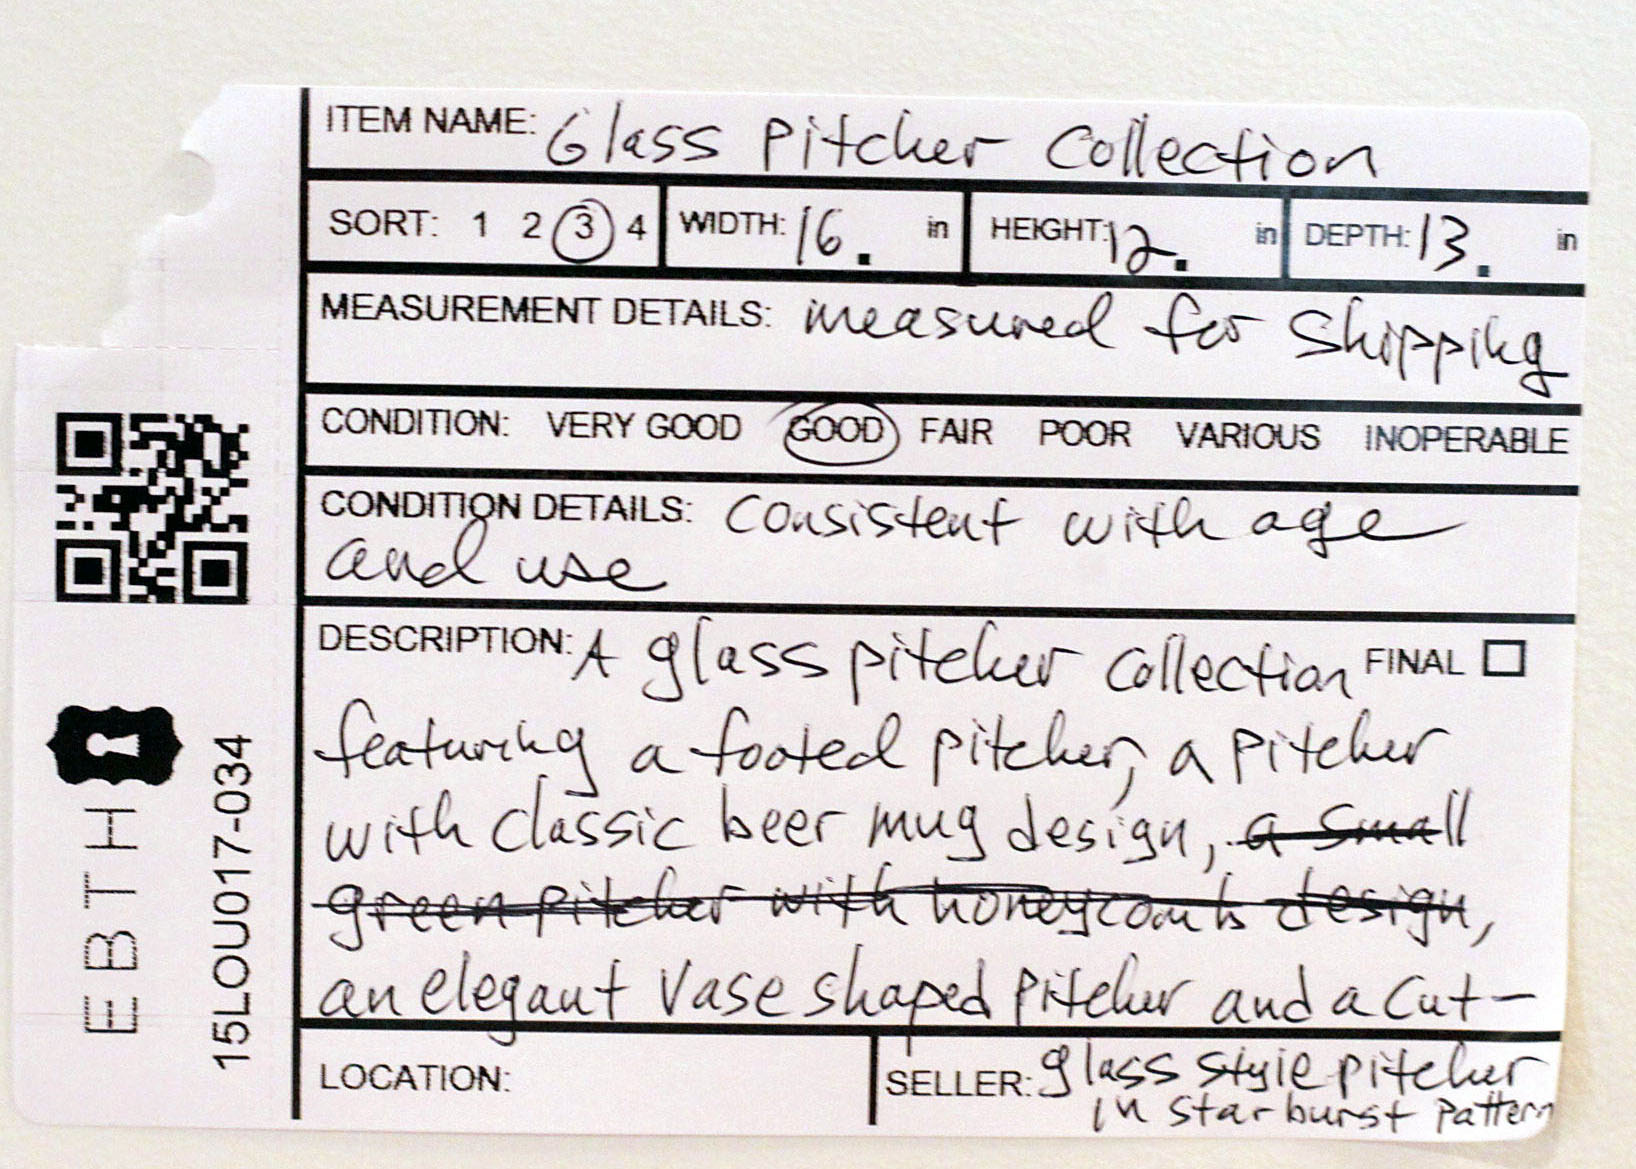 ITEM NAME: Glass Pitcher Collection
SORT: 1 2 3 4 WIDTH: 16. in HEIGHT: 12. in DEPTH: 13. in
MEASUREMENT DETAILS: measured for Shipping
CONDITION: VERY GOOD GOOD FAIR POOR VARIOUS INOPERABLE
CONDITION DETAILS: Consistent with age
and use
DESCRIPTION: A glass pitcher collection FINAL
featuring a footed pitcher, a pitcher
with classic beer mug design, a small
green pitcher with honeycomb design,
an elegant vase shaped pitcher and a cut-
LOCATION:
SELLER: glass style pitcher
in starburst pattern
EBTH
15LOU017-034